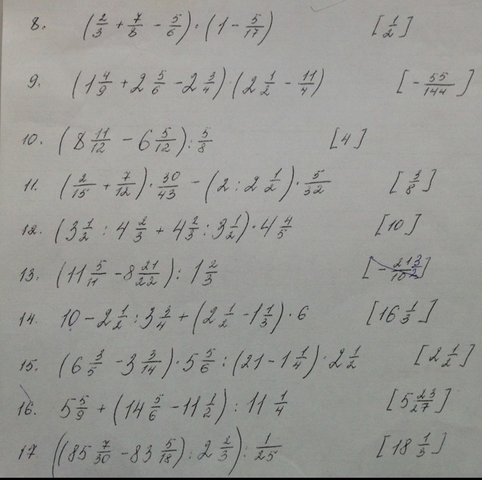 8. (2/3 + 7/8 - 5/6) · (1 - 5/17) [1/2]
9. (1 4/9 + 2 5/6 - 2 3/4) (2 1/2 - 11/4) [-55/144]
10. (8 11/12 - 6 5/12) : 5/8 [4]
11. (2/15 + 7/12) · 30/43 - (2 : 2 1/2) · 5/32 [3/8]
12. (3 1/2 : 4 2/3 + 4 2/3 : 3 1/2) · 4 4/5 [10]
13. (11 5/11 - 8 21/22) : 1 2/3
14. 10 - 2 1/2 : 3 3/4 + (2 1/2 - 1 1/3) · 6 [16 1/3]
15. (6 3/5 - 3 3/14) · 5 5/6 : (21 - 1 1/4) · 2 1/2 [2 1/2]
16. 5 5/9 + (14 5/6 - 11 1/2) : 11 1/4 [5 23/27]
17 ((85 7/30 - 83 5/18) : 2 2/3) : 1/25 [18 1/3]